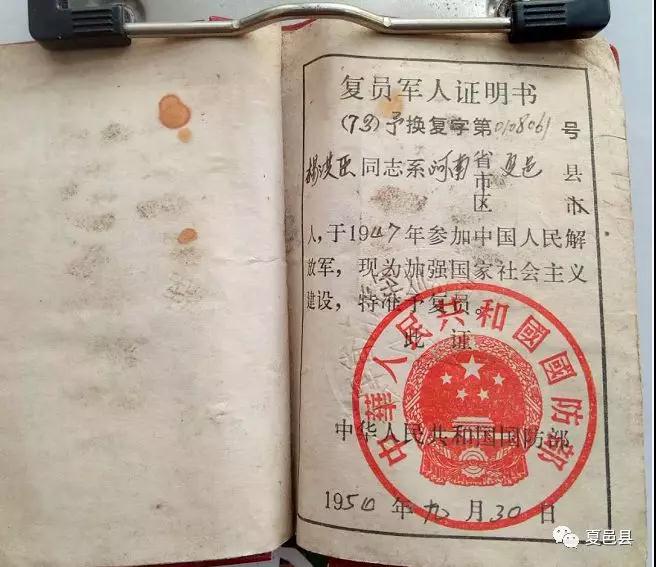 复员军人证明书
(73)予换复字第0108061号
杨洪臣同志系河南省市区夏邑县市
人，于1947年参加中国人民解
放军，现为加强国家社会主义
建设，特准予复员。
此证
中华人民共和国国防部
中華人民共和國國防部
1954年九月30日
夏邑县